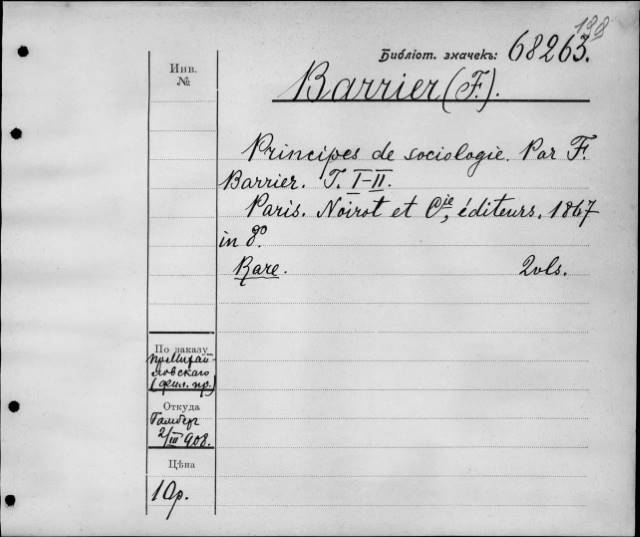 198
Библіот. значекъ: 68263.
Инв.
№
Barrier (F.).
Principes de sociologie. Par F.
Barrier. T. I-II.
Paris. Noirot et Cie, éditeurs. 1867
in 8º.
Rare. 2 vls.
По заказу
пр. Михай-
ловскаго
(фил. пр.)
Откуда
2/III 908.
Цѣна
10р.